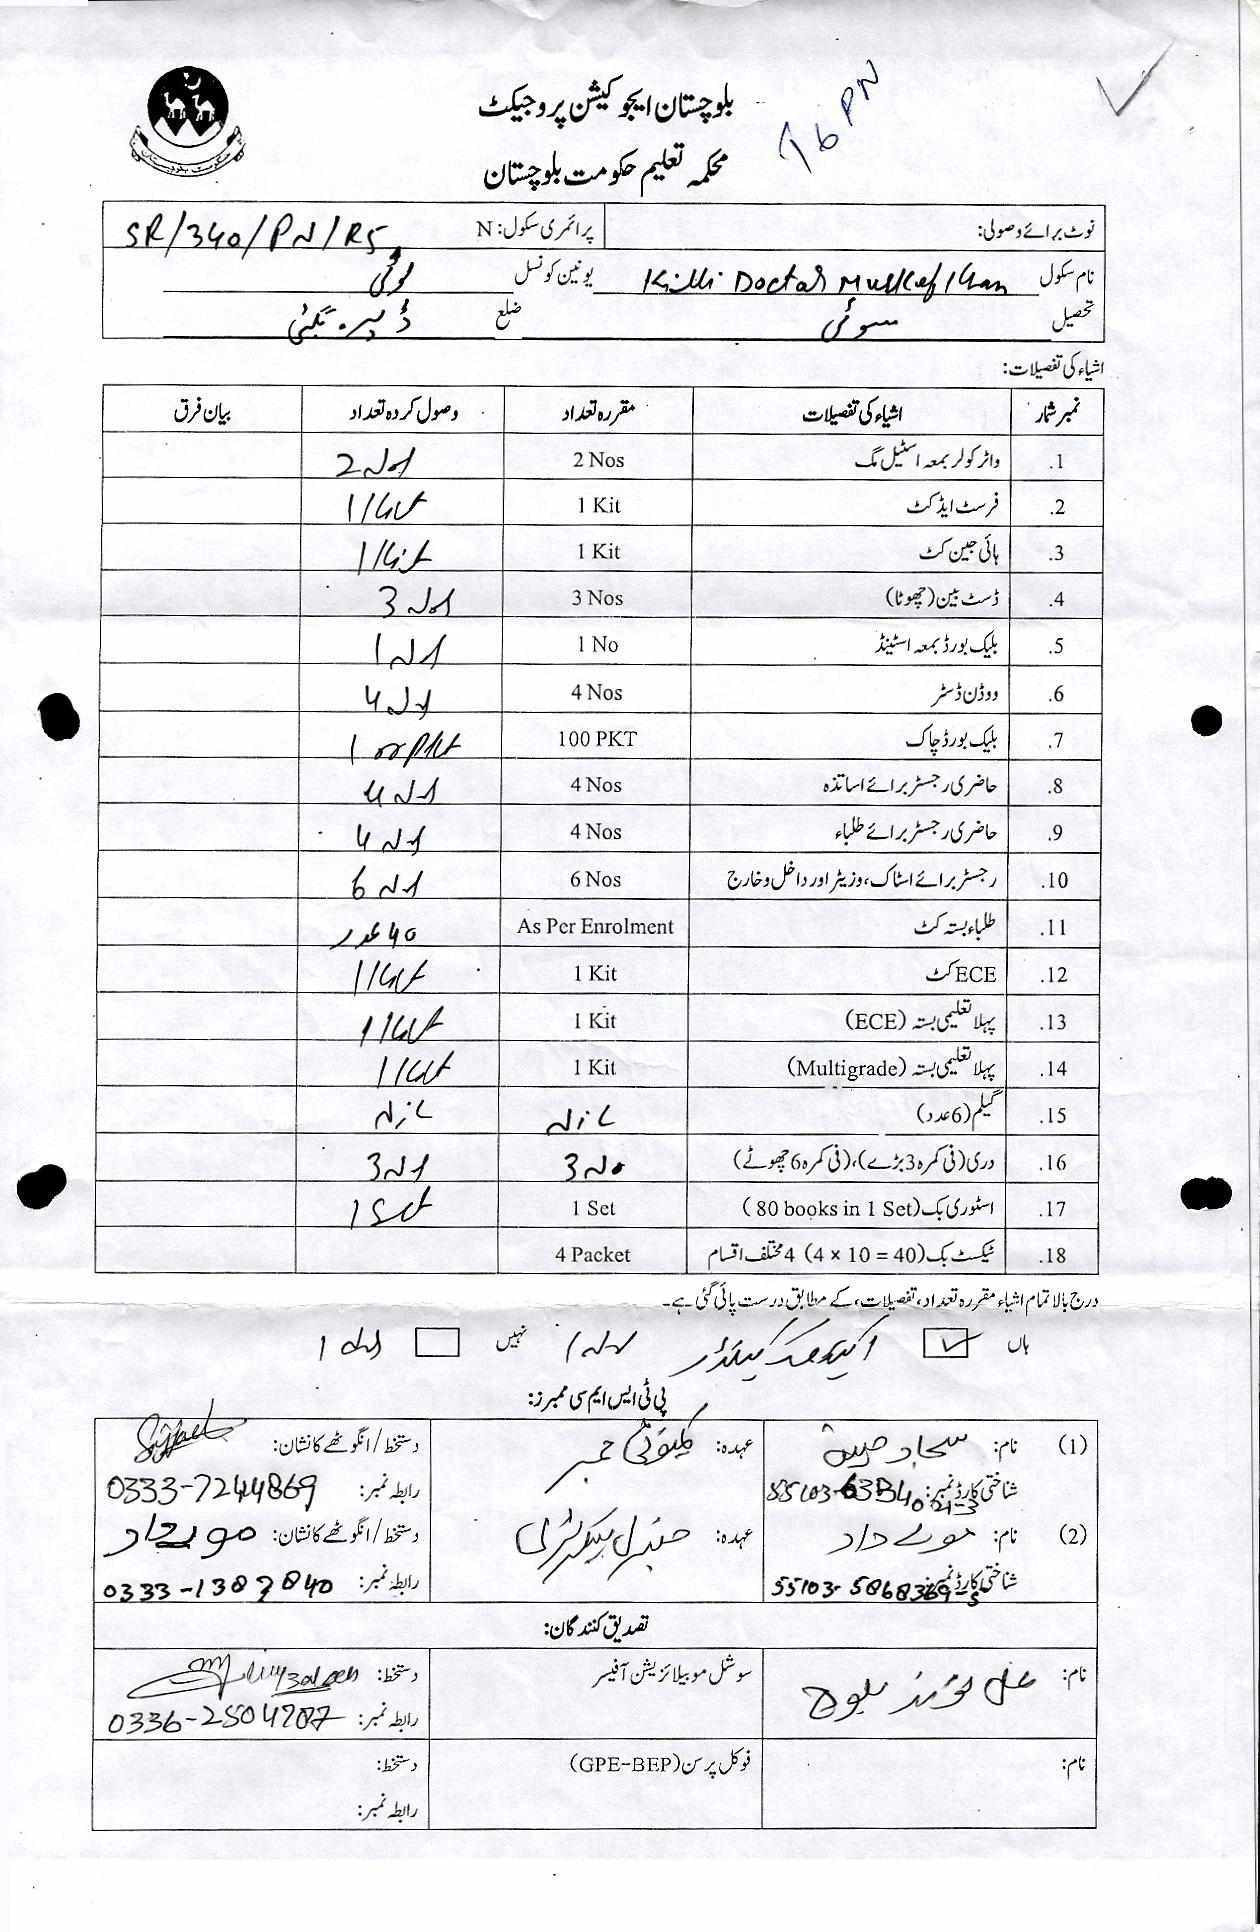 بلوچستان ایجوکیشن پروجیکٹ
16 PN
محکمہ تعلیم حکومت بلوچستان
حکومت بلوچستان
نوٹ برائے وصولی:
پرائمری سکول: N SR/340/PN/R5
نام سکول Killi Doctor یونین کونسل
تحصیل سوئی ضلع ڈیرہ بگٹی
اشیاء کی تفصیلات:
نمبر شمار اشیاء کی تفصیلات مقررہ تعداد وصول کردہ تعداد بیان فرق
1. واٹر کولر بمعہ اسٹیل مگ 2 Nos 2 Nos
2. فرسٹ ایڈ کٹ 1 Kit 1 Kit
3. ہائی جین کٹ 1 Kit 1 Kit
4. ڈسٹ بین (چھوٹا) 3 Nos 3 Nos
5. بلیک بورڈ بمعہ اسٹینڈ 1 No 1 No
6. ووڈن ڈسٹر 4 Nos 4 No
7. بلیک بورڈ چاک 100 PKT 100 PKt
8. حاضری رجسٹر برائے اساتذہ 4 Nos 4 No
9. حاضری رجسٹر برائے طلباء 4 Nos 4 No
10. رجسٹر برائے اسٹاک، وزیٹر اور داخل و خارج 6 Nos 6 No
11. طلباء بستہ کٹ As Per Enrolment 40 عدد
12. ECE کٹ 1 Kit 1 Kit
13. پہلا تعلیمی بستہ (ECE) 1 Kit 1 Kit
14. پہلا تعلیمی بستہ (Multigrade) 1 Kit 1 Kit
15. گیلم (6 عدد) Nil Nil
16. دری (فی کمرہ 3 بڑے)، (فی کمرہ 6 چھوٹے) 3 No 3 No
17. اسٹوری بک (80 books in 1 Set) 1 Set 1 Set
18. ٹیکسٹ بک (4 × 10 = 40) 4 مختلف اقسام 4 Packet
درج بالا تمام اشیاء مقررہ تعداد، تفصیلات، کے مطابق درست پائی گئی ہے۔
ہاں نہیں
پی ٹی ایس ایم سی ممبرز:
(1) نام: سجاد عہدہ: کمیونٹی ممبر دستخط/انگوٹھے کا نشان:
شناختی کارڈ نمبر: رابطہ نمبر: 0333-7244869
(2) نام: مولے داد عہدہ: جنرل سیکریٹری دستخط/انگوٹھے کا نشان: مولےداد
شناختی کارڈ نمبر: رابطہ نمبر:
تصدیق کنندگان:
نام: بلوچ سوشل موبیلائزیشن آفیسر دستخط:
رابطہ نمبر:
نام: فوکل پرسن (GPE-BEP) دستخط:
رابطہ نمبر: